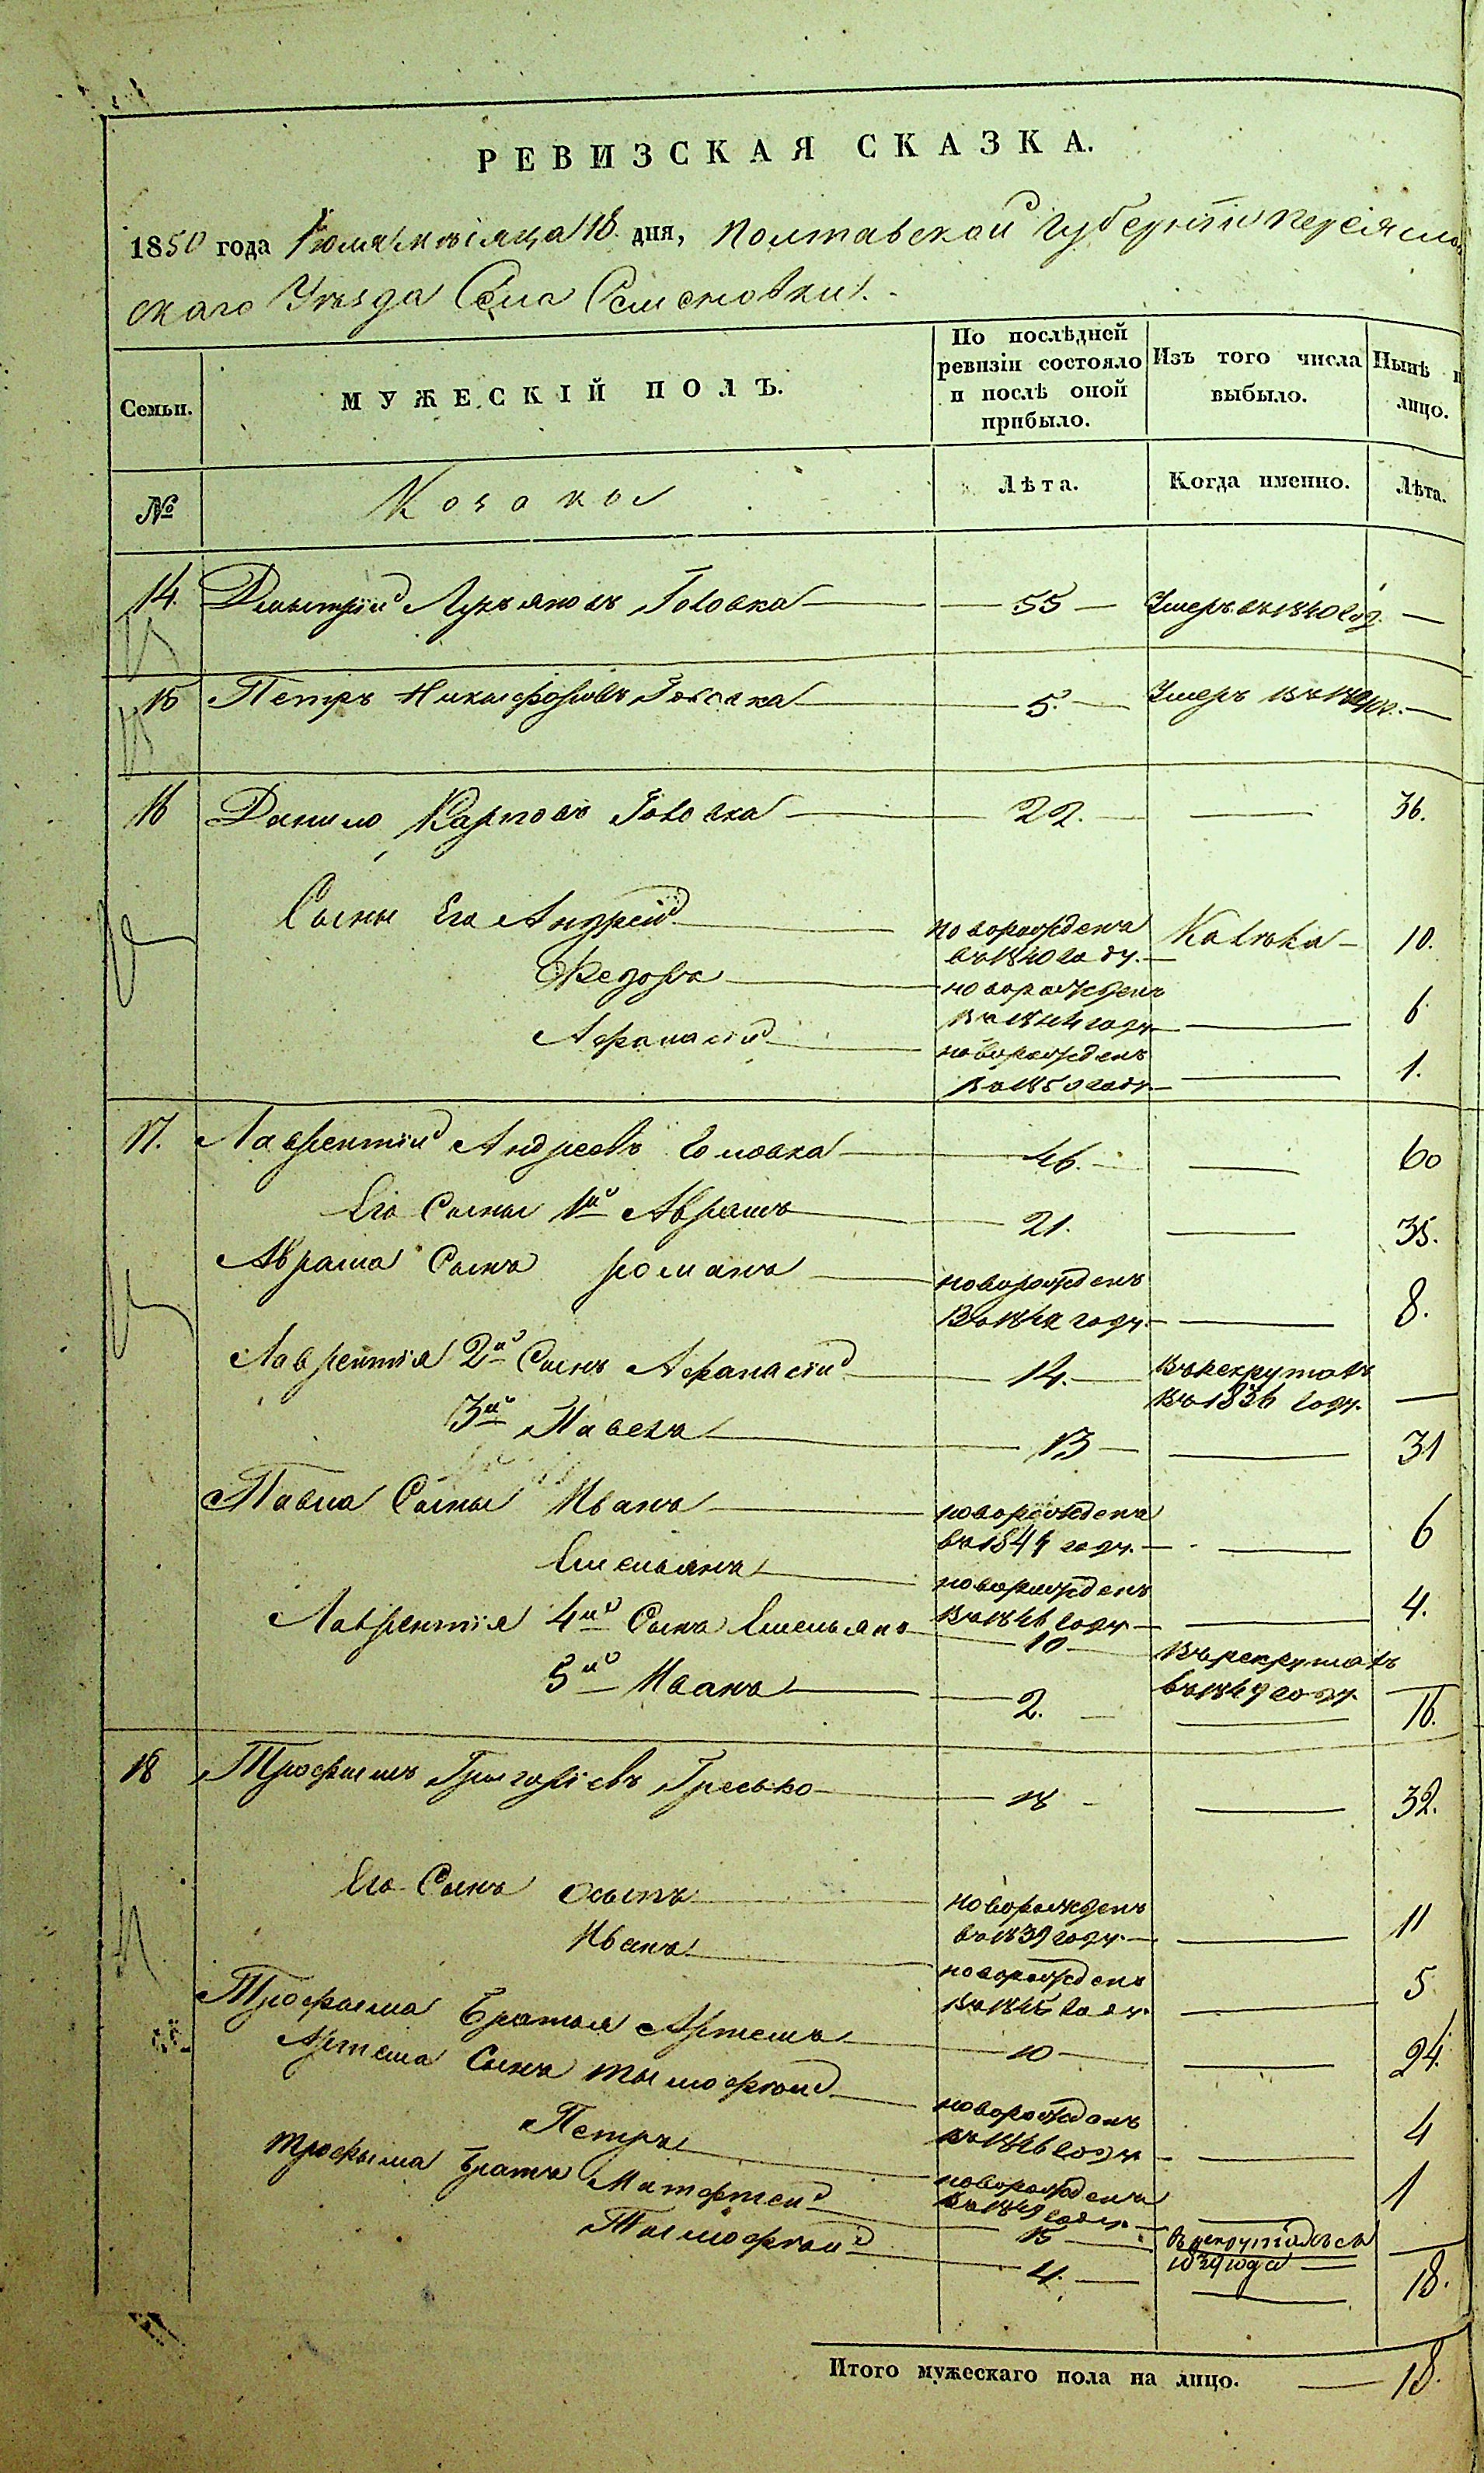 РЕВИЗСКАЯ СКАЗКА.
1850 года Іюля мѣсяца 18. дня, Полтавской Губерніи Переясла
скаго Уѣзда Села Семеновки.
Семьи.
МУЖЕСКІЙ ПОЛЪ.
По послѣдней ревизіи состояло и послѣ оной прибыло.
Изъ того числа выбыло.
Нынѣ н лицо.
№
Козаки
Лѣта.
Когда именно.
Лѣта.
14. Дмытрій Лукъяновъ Головка 55 Умеръ въ 1840 год.
15 Петръ Никифоровъ Головка 5. Умеръ въ
16 Данило Карповъ Головка 22. 36.
Сыны Его Андрей новорожденъ 10.
въ 1840 году.
Федоръ новорожденъ 6
въ 1844 году
Афанасій новорожденъ 1.
въ 1850 году.
17. Лаврентій Андреевъ Головка 46. 60
Его Сыны 1й Аврамъ 21. 35.
Аврама Сынъ романъ новорожденъ 8.
въ 1842 году.
Лаврентія 2й Сынъ Афанасій 14. въ рекрутахъ
въ 1836 году.
3й Павелъ 31
Павла Сыны Иванъ новорожденъ 6
въ 1844 году.
Емельянъ новорожденъ 4.
въ 1846 году
Лаврентія 4й Сынъ Емельянъ 10 въ рекрутахъ
въ 1849 году.
5й Иванъ 2. 16.
18 Трофимъ Григоріевъ Гресько 18 32.
Его Сынъ Осыпъ новорожденъ 11
въ 1839 году.
Иванъ новорожденъ 5
въ 1845 году.
Трофыма Братья Артемъ 10 24.
Артема Сынъ тымофтей новорожденъ 4
въ 1846 году
Петръ новорожденъ 1
въ 1849 году.
трофыма Братъ Матфтей 15
1839 года
Тымофтей 4. 18.
Итого мужескаго пола на лицо. 18.